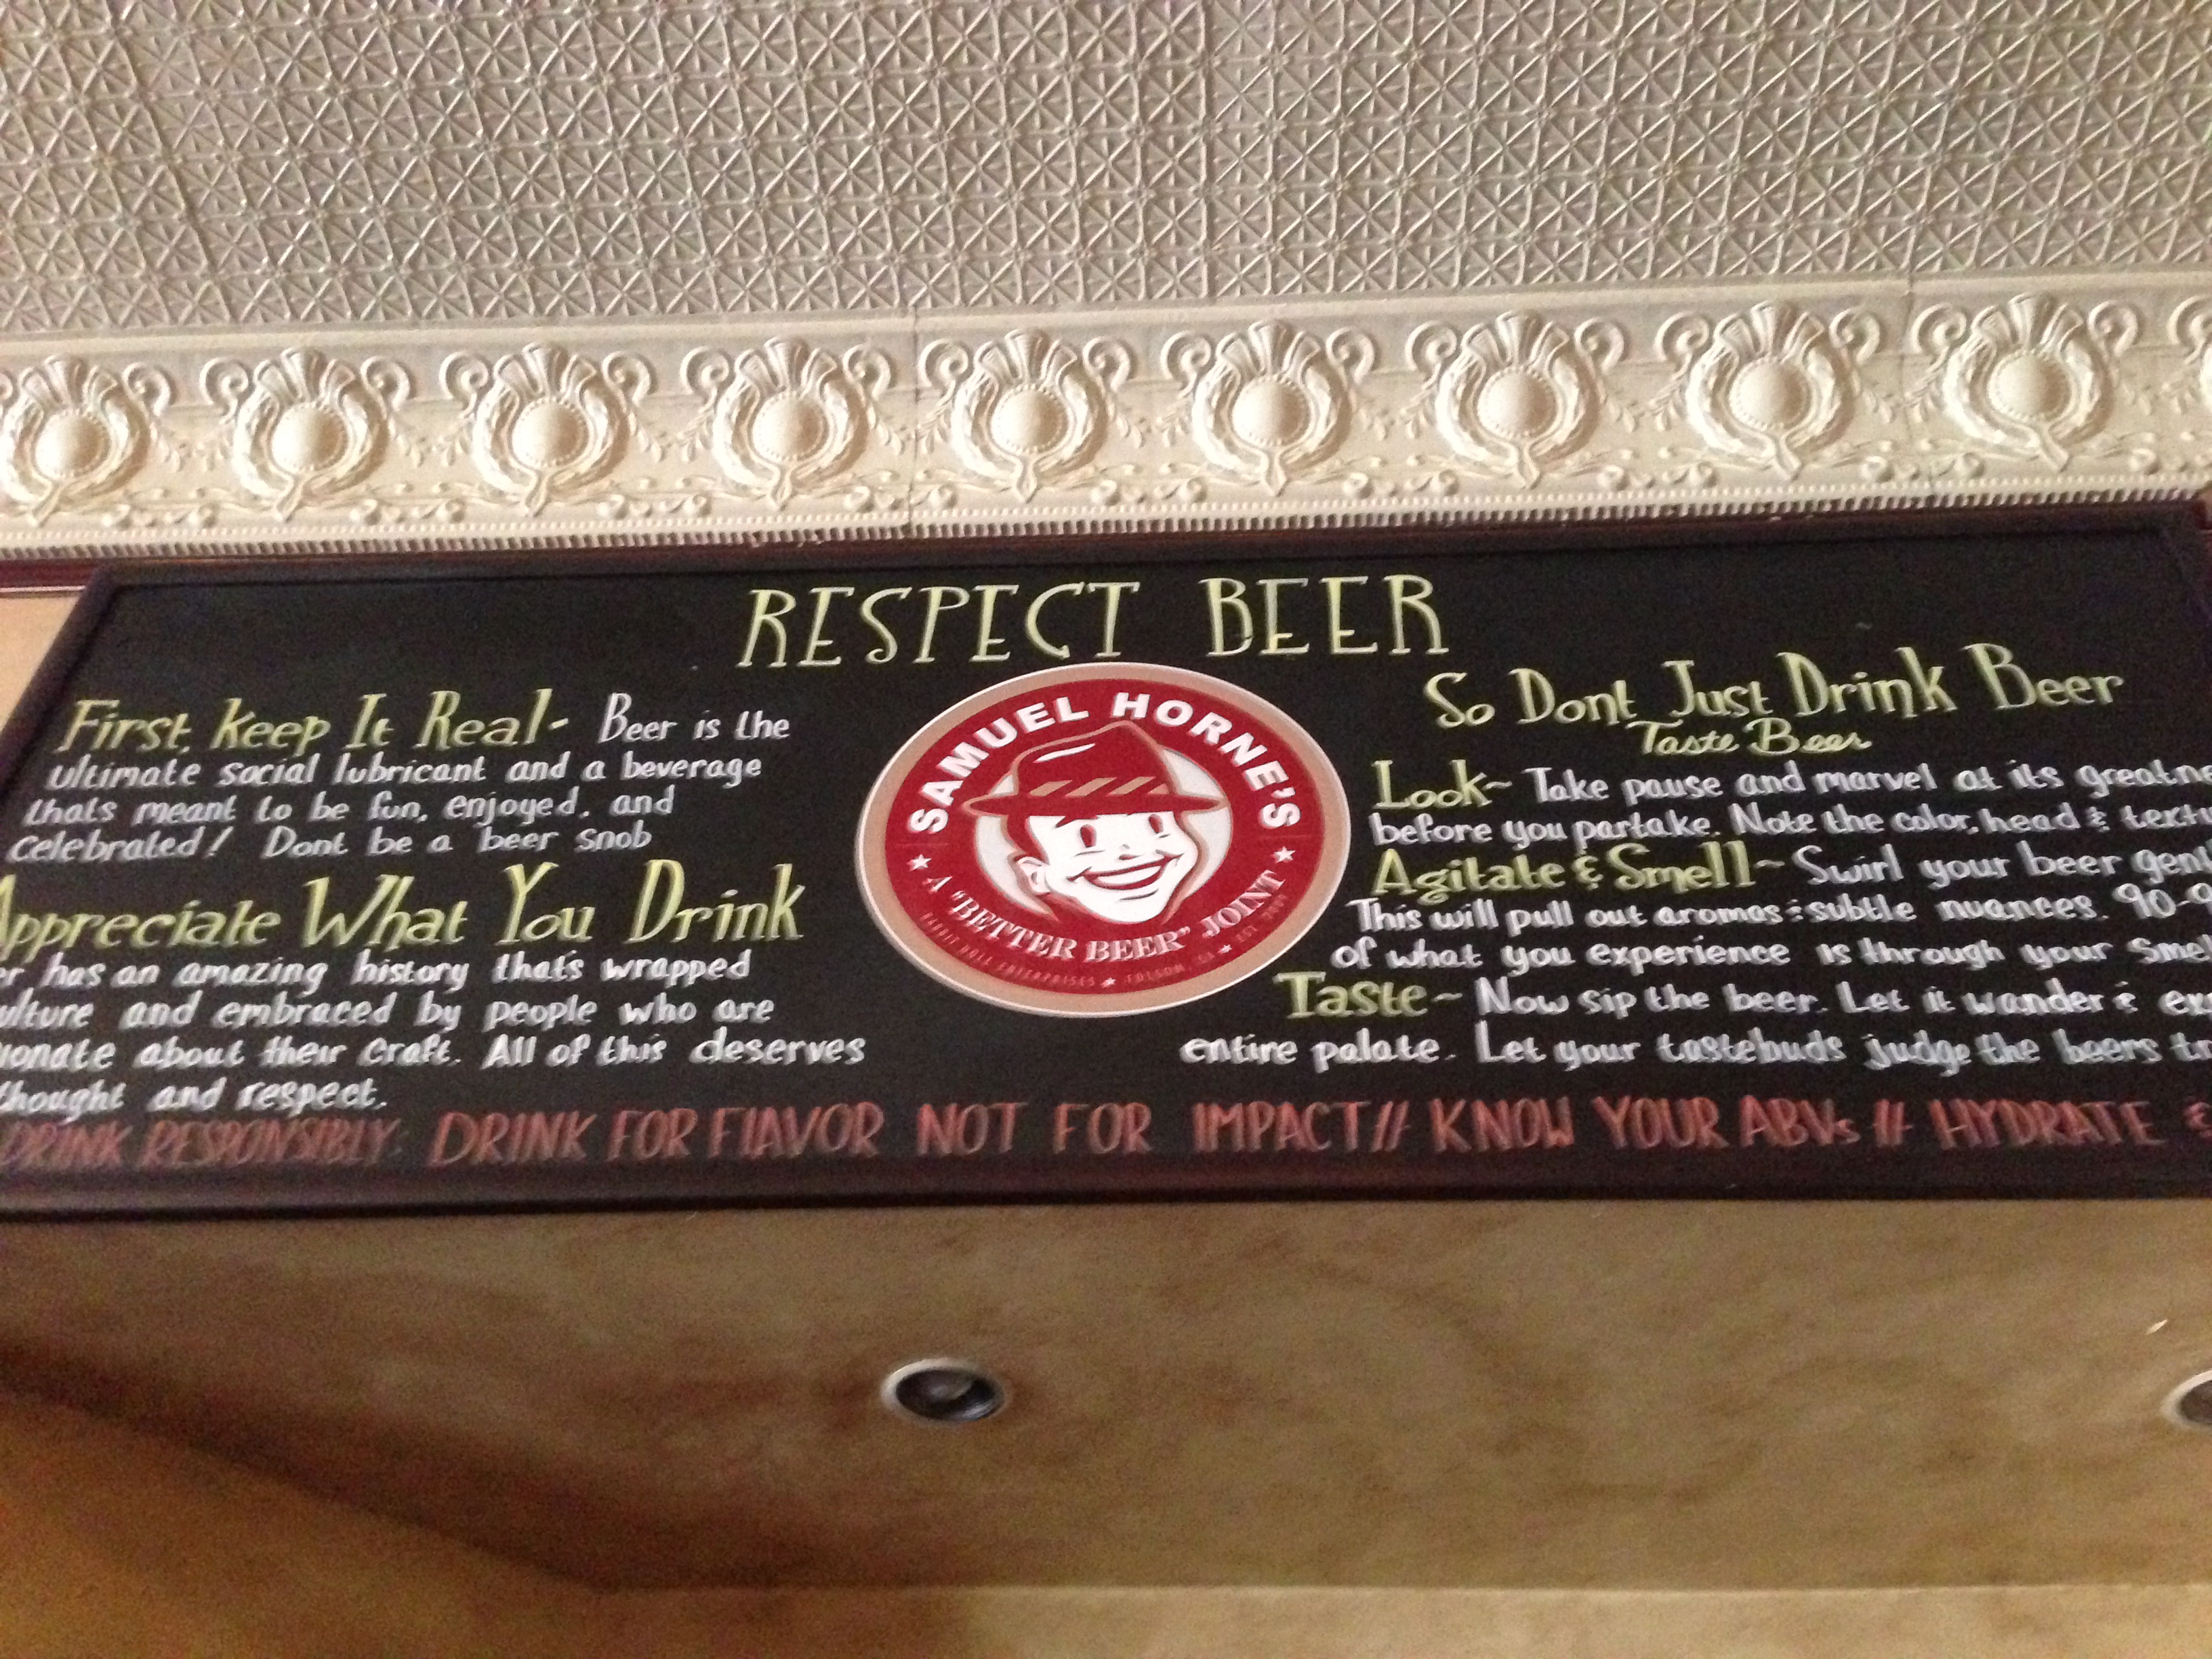 RESPECT BEER
First, Keep It Real- Beer is the
ultimate social lubricant and a beverage
thats meant to be fun, enjoyed, and
celebrated! Dont be a beer snob
Appreciate What You Drink
er has an amazing history that's wrapped
ulture and embraced by people who are
ionate about their craft. All of this deserves
thought and respect.
SAMUEL HORNE'S
A "BETTER BEER" JOINT
ENTERPRISES ★ FOLSOM, CA ★ EST.
So Dont Just Drink Beer
Taste Beer
Look~ Take pause and marvel at its greatne
before you partake. Note the color, head & text
Agitate & Smell~ Swirl your beer gent
This will pull out aromas & subtle nuances. 90-9
of what you experience is through your Sme
Taste~ Now sip the beer. Let it wander & e
entire palate. Let your tastebuds judge the beers t
DRINK RESPONSIBLY: DRINK FOR FLAVOR NOT FOR IMPACT// KNOW YOUR ABVs // HYDRATE &